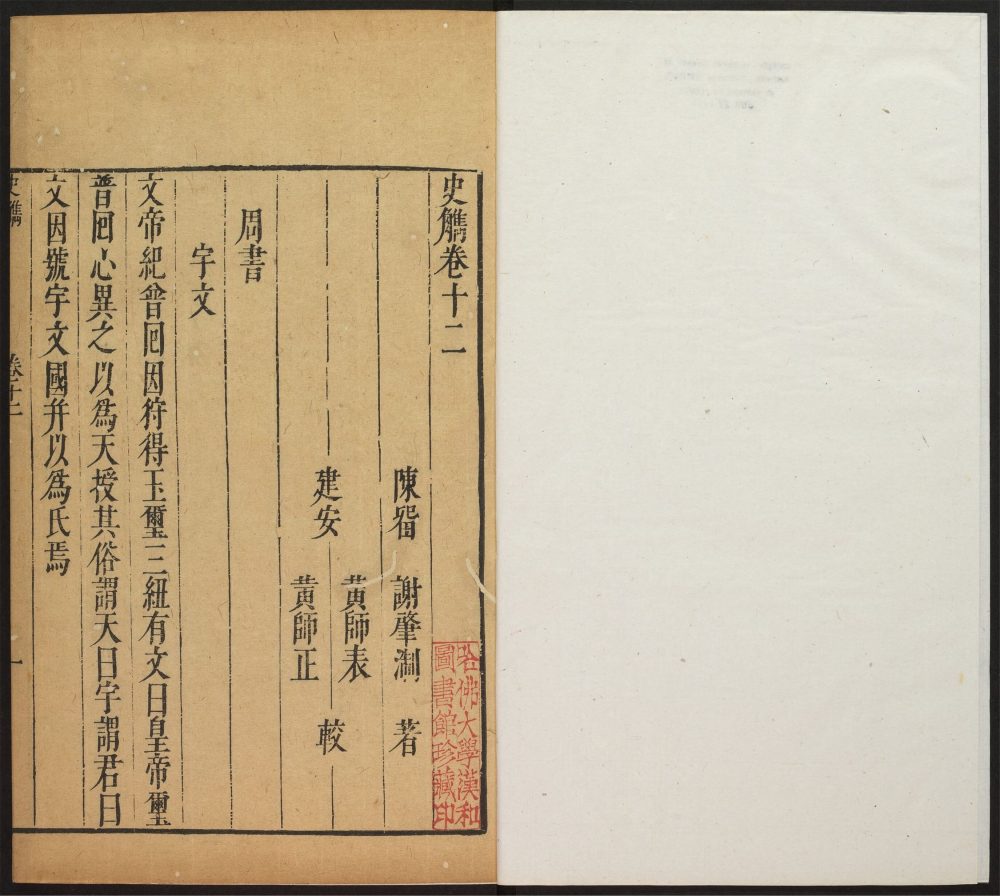 史觿卷十二
陳畱 謝肇淛 著
黃師表
建安 較
黃師正
周書
宇文
文帝紀曾囘因狩得玉璽三紐有文曰皇帝璽
普囘心異之以爲天授其俗謂天曰宇謂君曰
文因號宇文國并以爲氏焉
史觿 卷十二 一
哈佛大學漢和
圖書館珍藏印